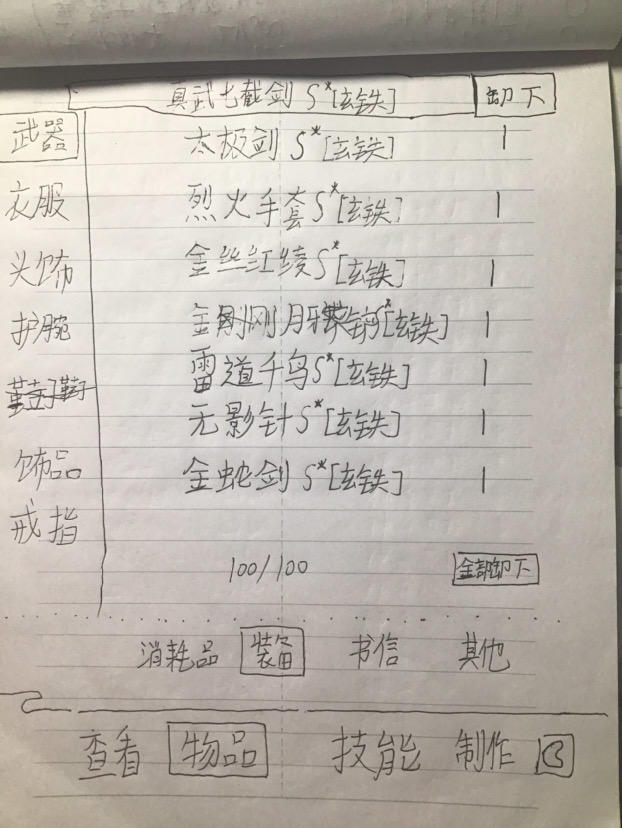 真武七截剑 S*[玄铁] 卸下
武器 太极剑 S*[玄铁] 1
衣服 烈火手套 S*[玄铁] 1
头饰 金丝红绫 S*[玄铁] 1
护腕 金刚月牙 S*[玄铁] 1
雷道千鸟 S*[玄铁] 1
鞋子 无影针 S*[玄铁] 1
饰品 金蛇剑 S*[玄铁] 1
戒指
100/100 全部卸下
消耗品 装备 书信 其他
查看 物品 技能 制作